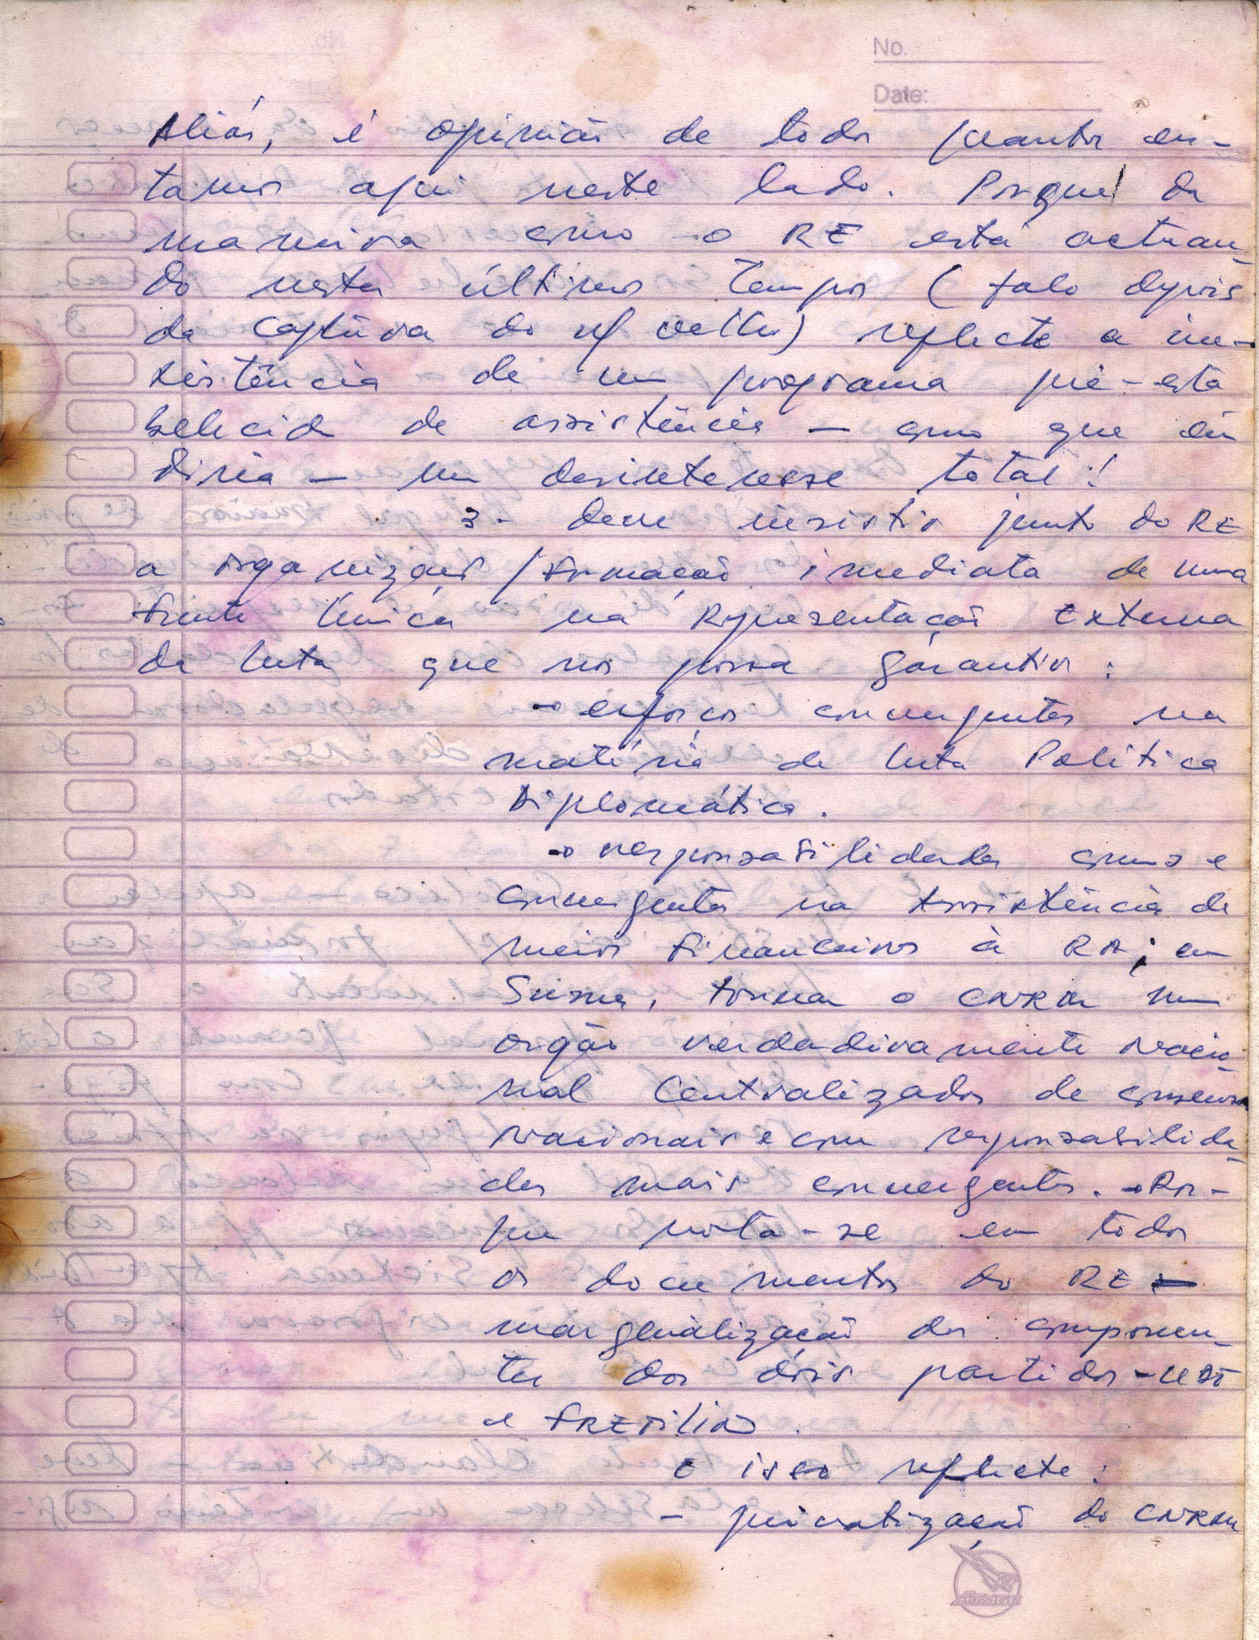 No.
Date:
Aliás, é opinião de todos quantos en-
tamos aqui neste lado. Porque da
maneira como o RE está actuan-
do nestes últimos Tempos (falo depois
da Captura do n/ velho) reflecte a ine-
xistência de um programa pré-esta
belecido de assistência – como que eu
diria – um desinteresse total!
3- deve insistir junto do RE
a organizar/formação imediata de uma
frente Única na Representação Externa
da luta que nos possa garantir:
-o esforços convergentes na
matéria de luta Política
Diplomática.
-o responsabilidades comuns e
convergentes na Assistência de
meios financeiros à RA; em
Suma, tornar o CNRM um
orgão verdadeiramente nacio-
nal Centralizador de consensos
nacionais e com responsabilida-
des mais convergentes. - Por-
que nota-se em todos
os documentos do RE
marginalização dos componen-
tes dos dois partidos - UDT
e FRETILIN.
E isso reflecte:
- privatização do CNRM